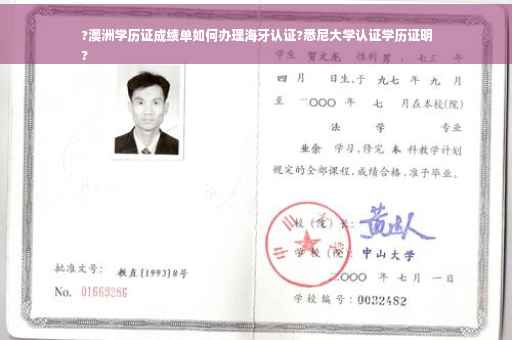 ?澳洲学历证成绩单如何办理海牙认证?悉尼大学认证学历证明
?
学生 贺文龙 性别 男 , 七三 年
四 月 日生,于 九七 年 九 月
至 二〇〇〇 年 七 月在本校(院)
法 学 专业
业余 学习,修完 本 科教学计划
规定的全部课程,成绩合格,准予毕业。
校(院)长:
学校(院): 中山大学
二〇〇〇 年 七 月 一 日
批准文号: 教直[1993]8号
No. 01669286
学校编号: 0032482
中山大学